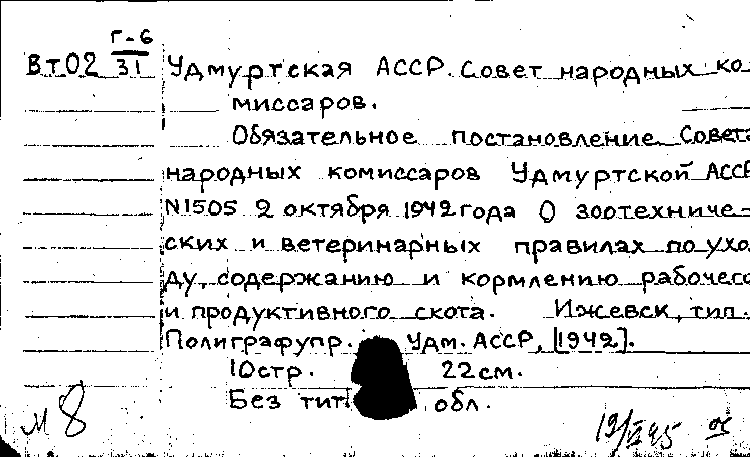 Г-6
Вт02 31 Удмуртская АССР. Совет народных ко
миссаров.
Обязательное постановление Совета
народных комиссаров Удмуртской АССР
N1505 2 октября 1942 года О зоотехниче-
ских и ветеринарных правилах по ухо
ду, содержанию и кормлению рабочего
и продуктивного скота. Ижевск, тип.
Полиграфупр. Удм. АССР, [1942].
10стр. 22см.
Без тит обл.
м 8